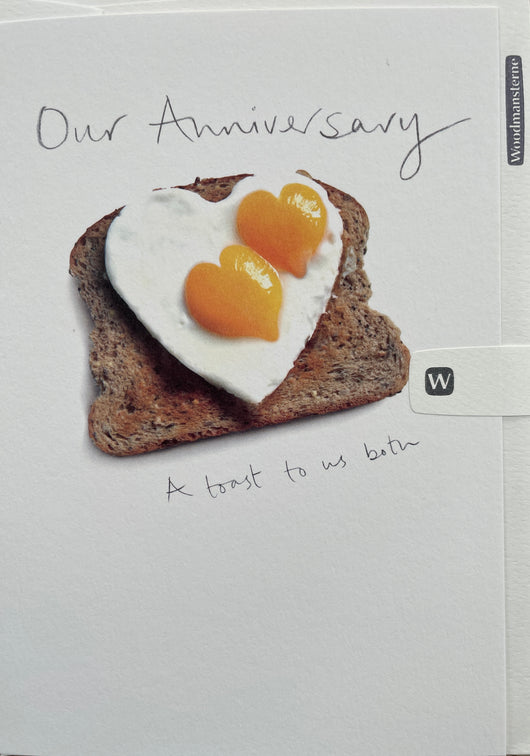 Our Anniversary
A toast to us both
Woodmansterne
W